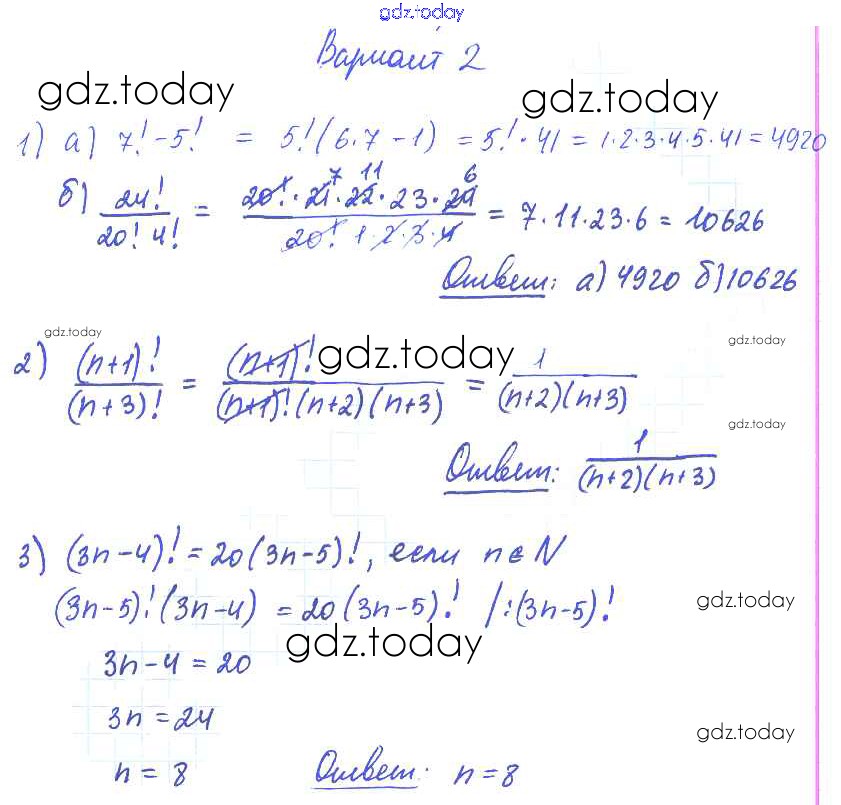 gdz.today
Вариант 2
gdz.today gdz.today
1) а) 7! - 5! = 5!(6·7 - 1) = 5!·41 = 1·2·3·4·5·41 = 4920
б) 24!/(20! 4!) = (20!·21·22·23·24)/(20! 1·2·3·4) = 7·11·23·6 = 10626
7 11 6
Ответ: а) 4920 б) 10626
gdz.today gdz.today gdz.today
2) (n+1)!/(n+3)! = (n+1)!/((n+1)!(n+2)(n+3)) = 1/((n+2)(n+3))
gdz.today
Ответ: 1/((n+2)(n+3))
3) (3n-4)! = 20(3n-5)!, если n∈N
(3n-5)!(3n-4) = 20(3n-5)! /:(3n-5)!
gdz.today
gdz.today
3n-4 = 20
3n = 24
gdz.today
n = 8 Ответ: n=8